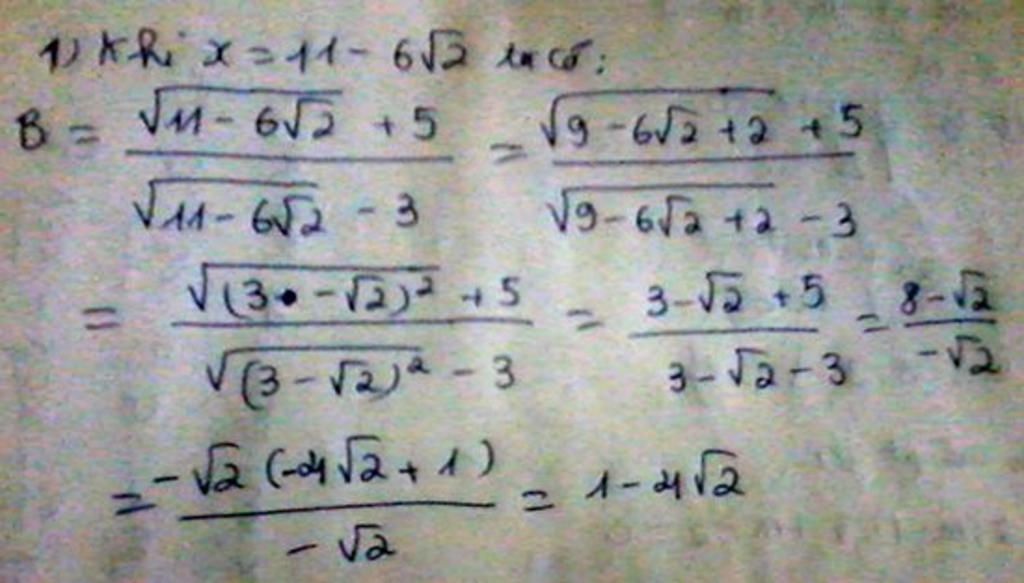 1) Khi x = 11 - 6√2 ta có:
B = (√(11 - 6√2) + 5) / (√(11 - 6√2) - 3) = (√(9 - 6√2 + 2) + 5) / (√(9 - 6√2 + 2) - 3)
= (√((3 - √2)²) + 5) / (√((3 - √2)²) - 3) = (3 - √2 + 5) / (3 - √2 - 3) = (8 - √2) / (-√2)
= (-√2 (-4√2 + 1)) / (-√2) = 1 - 4√2